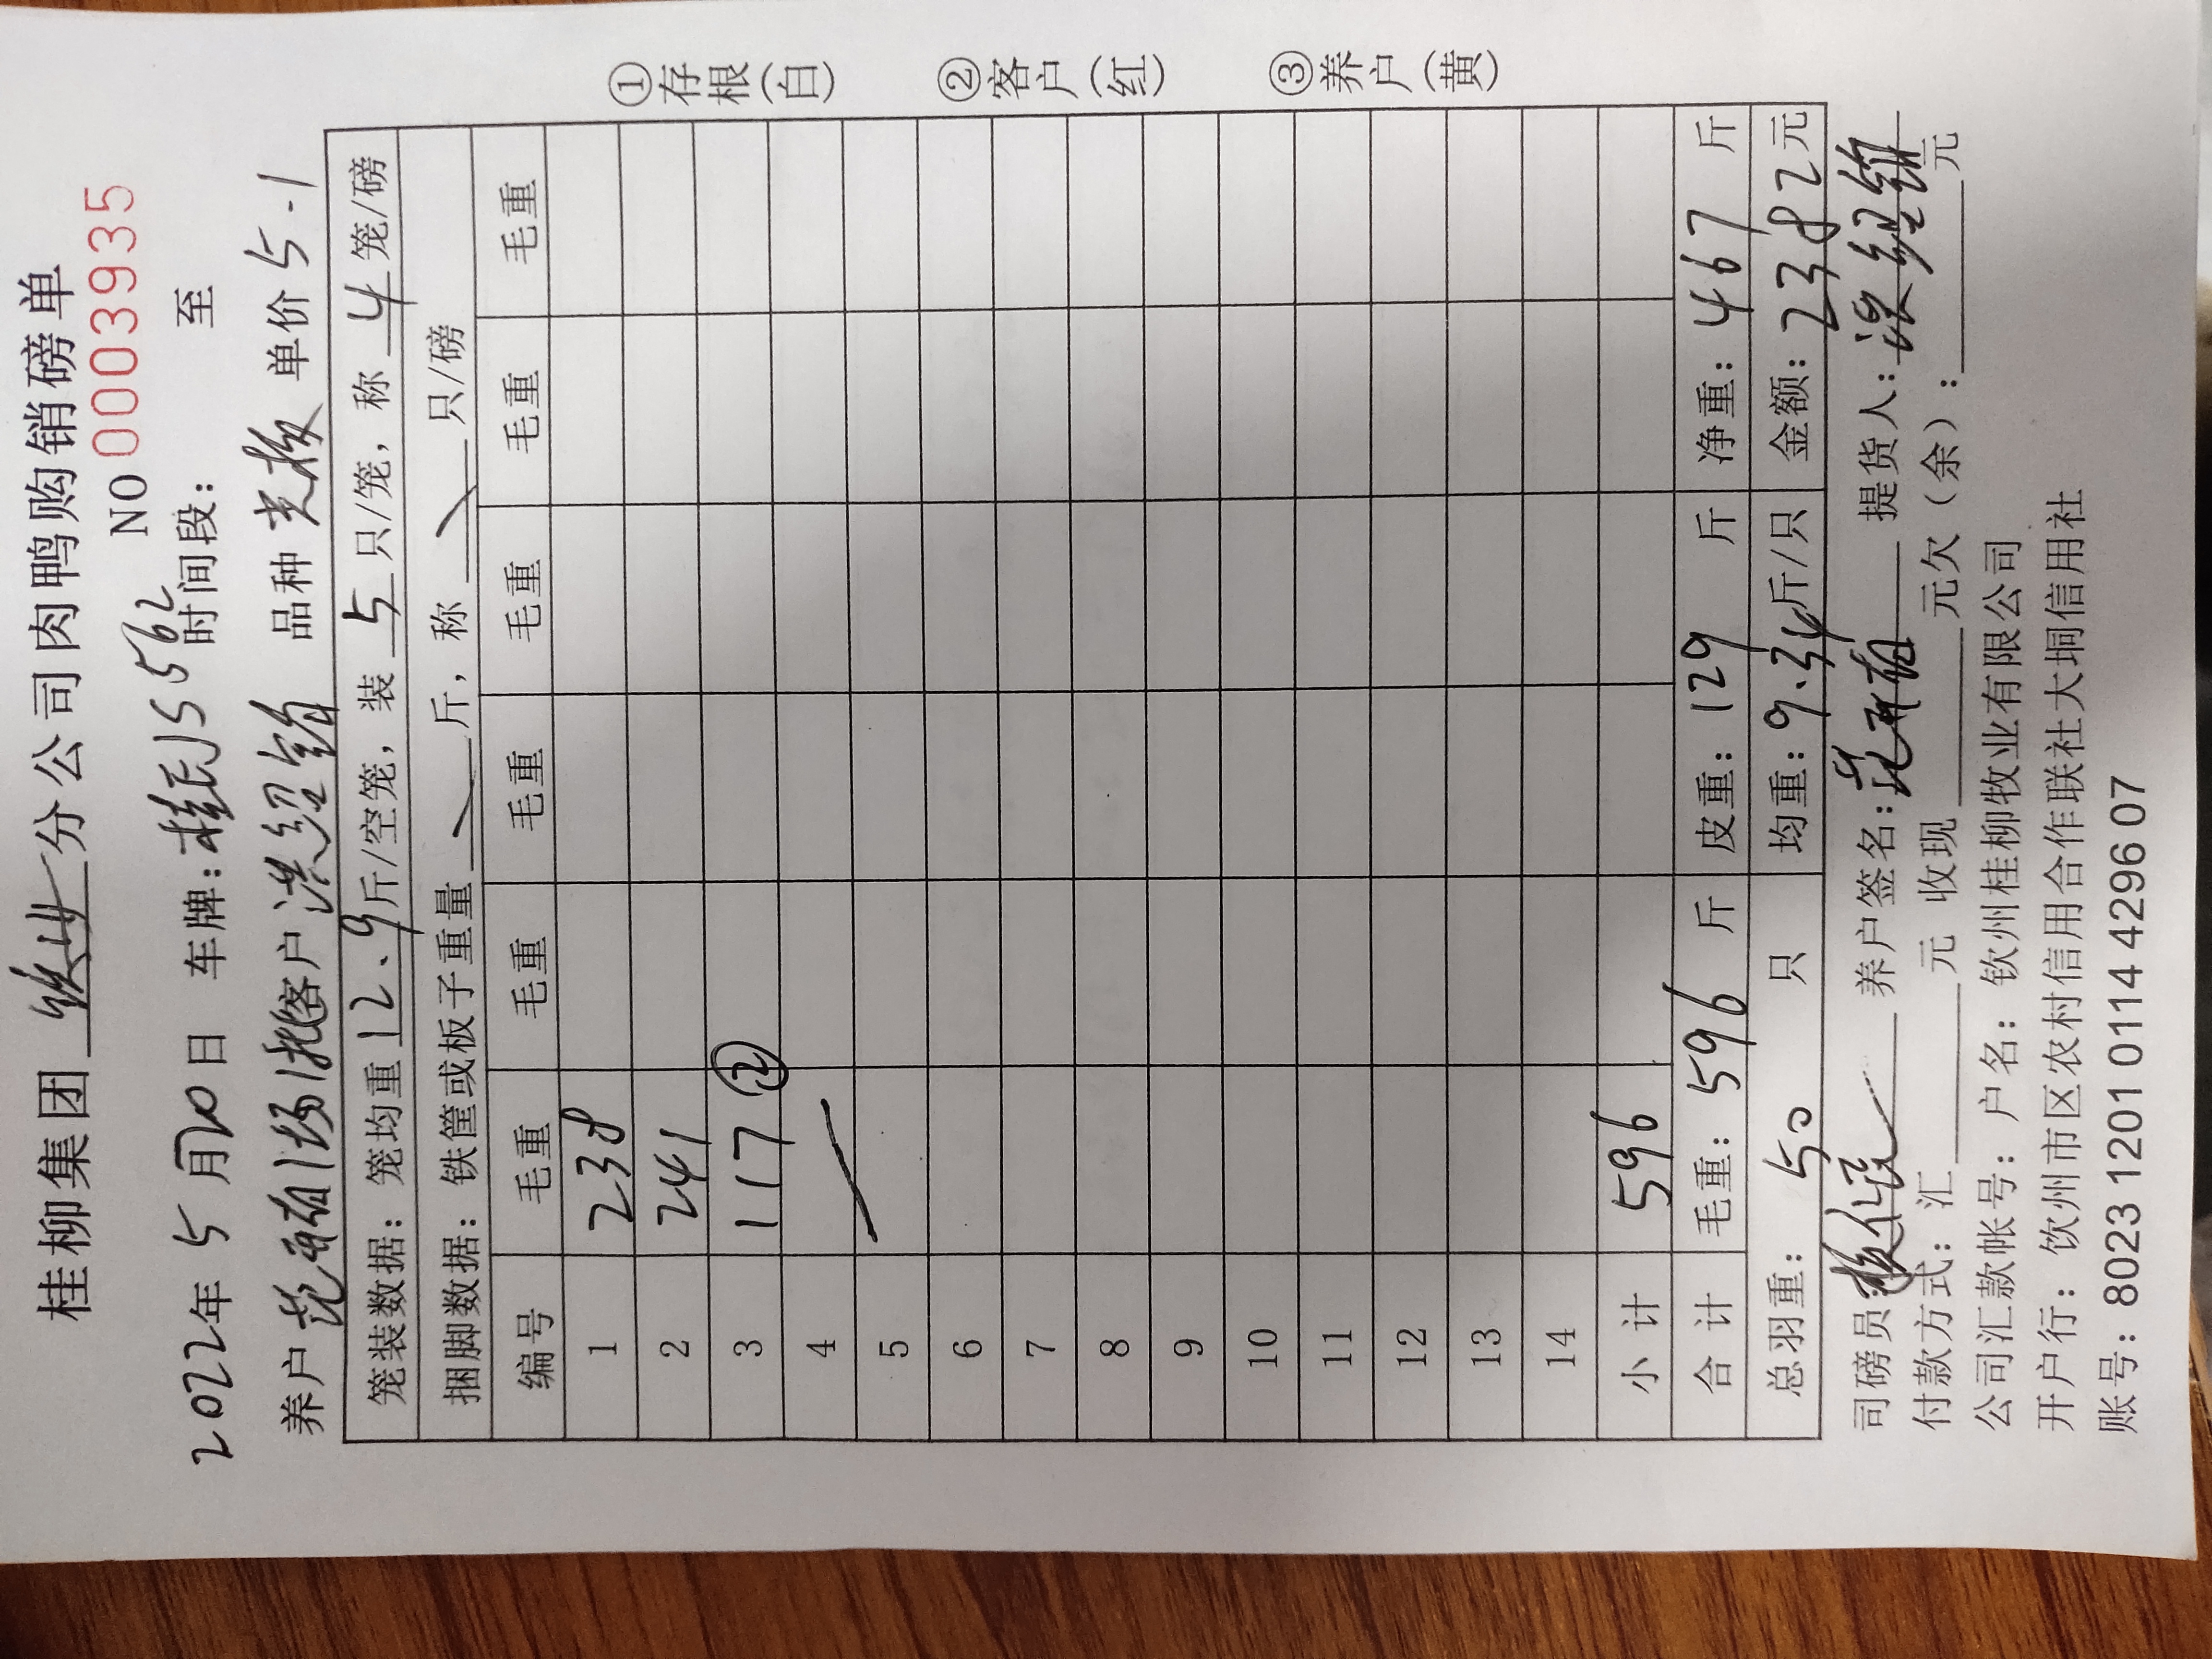 桂柳集团 分公司肉鸭购销磅单
NO 0003935
2022年 5月10日 车牌:桂 J5562 时间段: 至
养户 客户 品种 单价 5.1
笼装数据:笼均重12.9斤/空笼,装 5 只/笼,称 4 笼/磅
捆脚数据:铁筐或板子重量 \ 斤,称 \ 只/磅
编号 毛重 毛重 毛重 毛重 毛重 毛重
1 238
2 241
3 117 ②
4
5
6
7
8
9
10
11
12
13
14
小计 596
合计 毛重:596斤 皮重:129斤 净重:467斤
总羽重:50只 均重:9.34斤/只 金额:2382元
司磅员: 养户签名: 提货人:
付款方式:汇 元 收现 元欠(余): 元
公司汇款帐号:户名:钦州桂柳牧业有限公司
开户行:钦州市区农村信用合作联社大垌信用社
账号:8023 1201 0114 4296 07
①存根(白) ②客户(红) ③养户(黄)